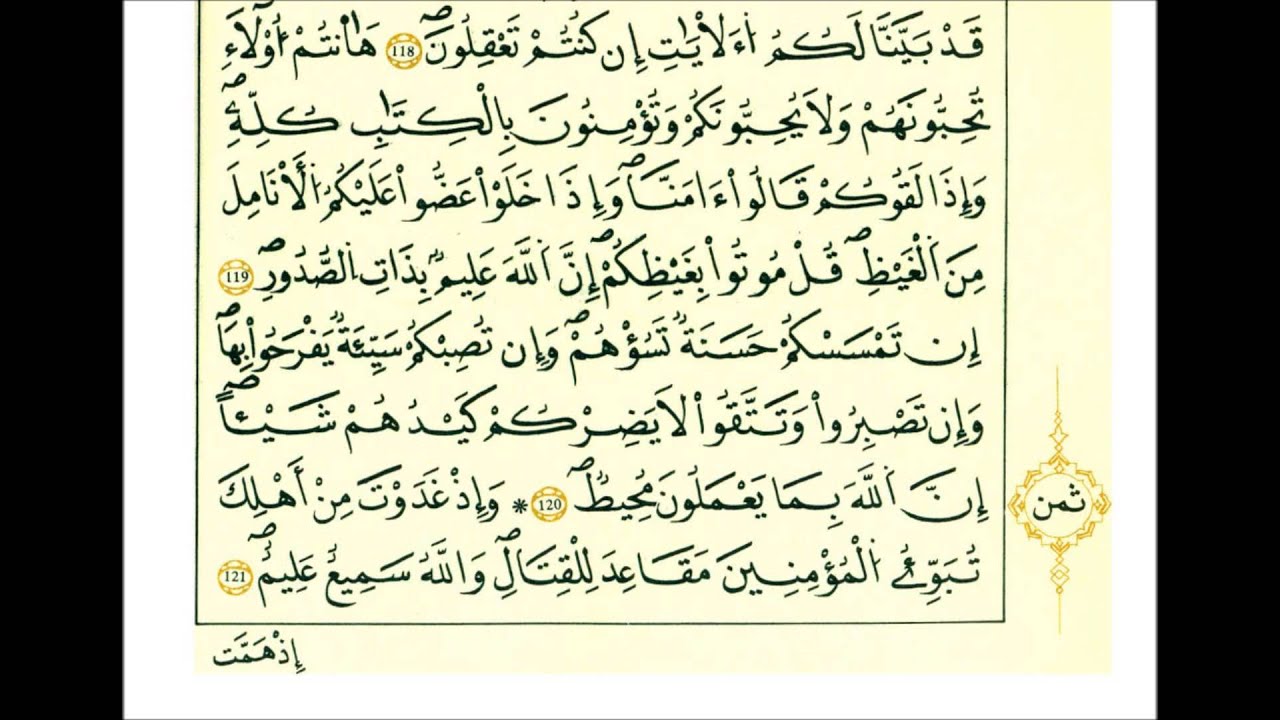 قَدْ بَيَّنَّا لَكُمُ اُ۬ءَلَايَٰتِ إِن كُنتُمْ تَعْقِلُونَۖ 118 هَٰانتُمْ أُوْلَآءِ
تُحِبُّونَهُمْ وَلَا يُحِبُّونَكُمْ وَتُؤْمِنُونَ بِالْكِتَٰبِ كُلِّهِۦۖ
وَإِذَا لَقُوكُمْ قَالُوٓاْ ءَامَنَّاۖ وَإِذَا خَلَوْاْ عَضُّواْ عَلَيْكُمُ اُ۬لْأَنَامِلَ
مِنَ اَ۬لْغَيْظِۖ قُلْ مُوتُواْ بِغَيْظِكُمْۖ إِنَّ اَ۬للَّهَ عَلِيمُۢ بِذَاتِ اِ۬لصُّدُورِۖ 119
إِن تَمْسَسْكُمْ حَسَنَةٌ تَسُؤْهُمْۖ وَإِن تُصِبْكُمْ سَيِّئَةٌ يَفْرَحُواْ بِهَاۖ
وَإِن تَصْبِرُواْ وَتَتَّقُواْ لَا يَضِرْكُمْ كَيْدُهُمْ شَيْـاًۖ
إِنَّ اَ۬للَّهَ بِمَا يَعْمَلُونَ مُحِيطٌۖ 120 * وَإِذْ غَدَوْتَ مِنْ أَهْلِكَ
تُبَوِّئُ اُ۬لْمُؤْمِنِينَ مَقَٰعِدَ لِلْقِتَالِۖ وَاللَّهُ سَمِيعٌ عَلِيمٌۖ 121
ثمن
إِذْ هَمَّت